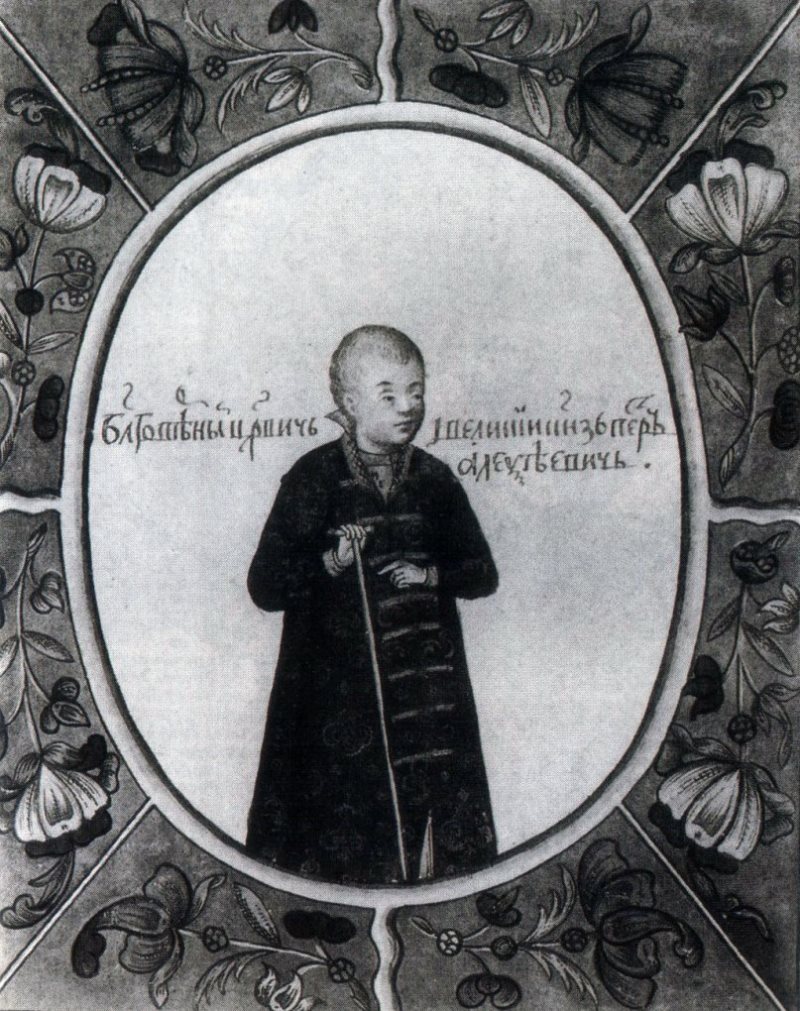 Бл҃говѣ́рный ц҃ре́вичь і вели́кий кн҃зь пе́тръ
алеѯѣевичь .